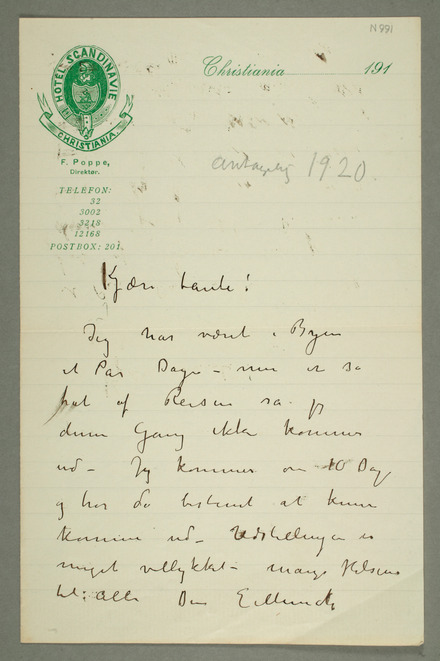 N 991
HOTEL SCANDINAVIE
CHRISTIANIA
Christiania 191
F. Poppe,
Direktør.
antagelig 1920
TELEFON:
32
3002
3218
12168
POSTBOX: 201
Kjære tante!
Jeg har været i Byen
et Par Dage – men er så
træt af Reisen så jeg
denne Gang ikke kommer
ud – Jeg kommer om 10 Dage
og tror da bestemt at kunne
komme ud – Udstillingen er
meget vellykket – mange Hilsener
til alle Din E. Munch